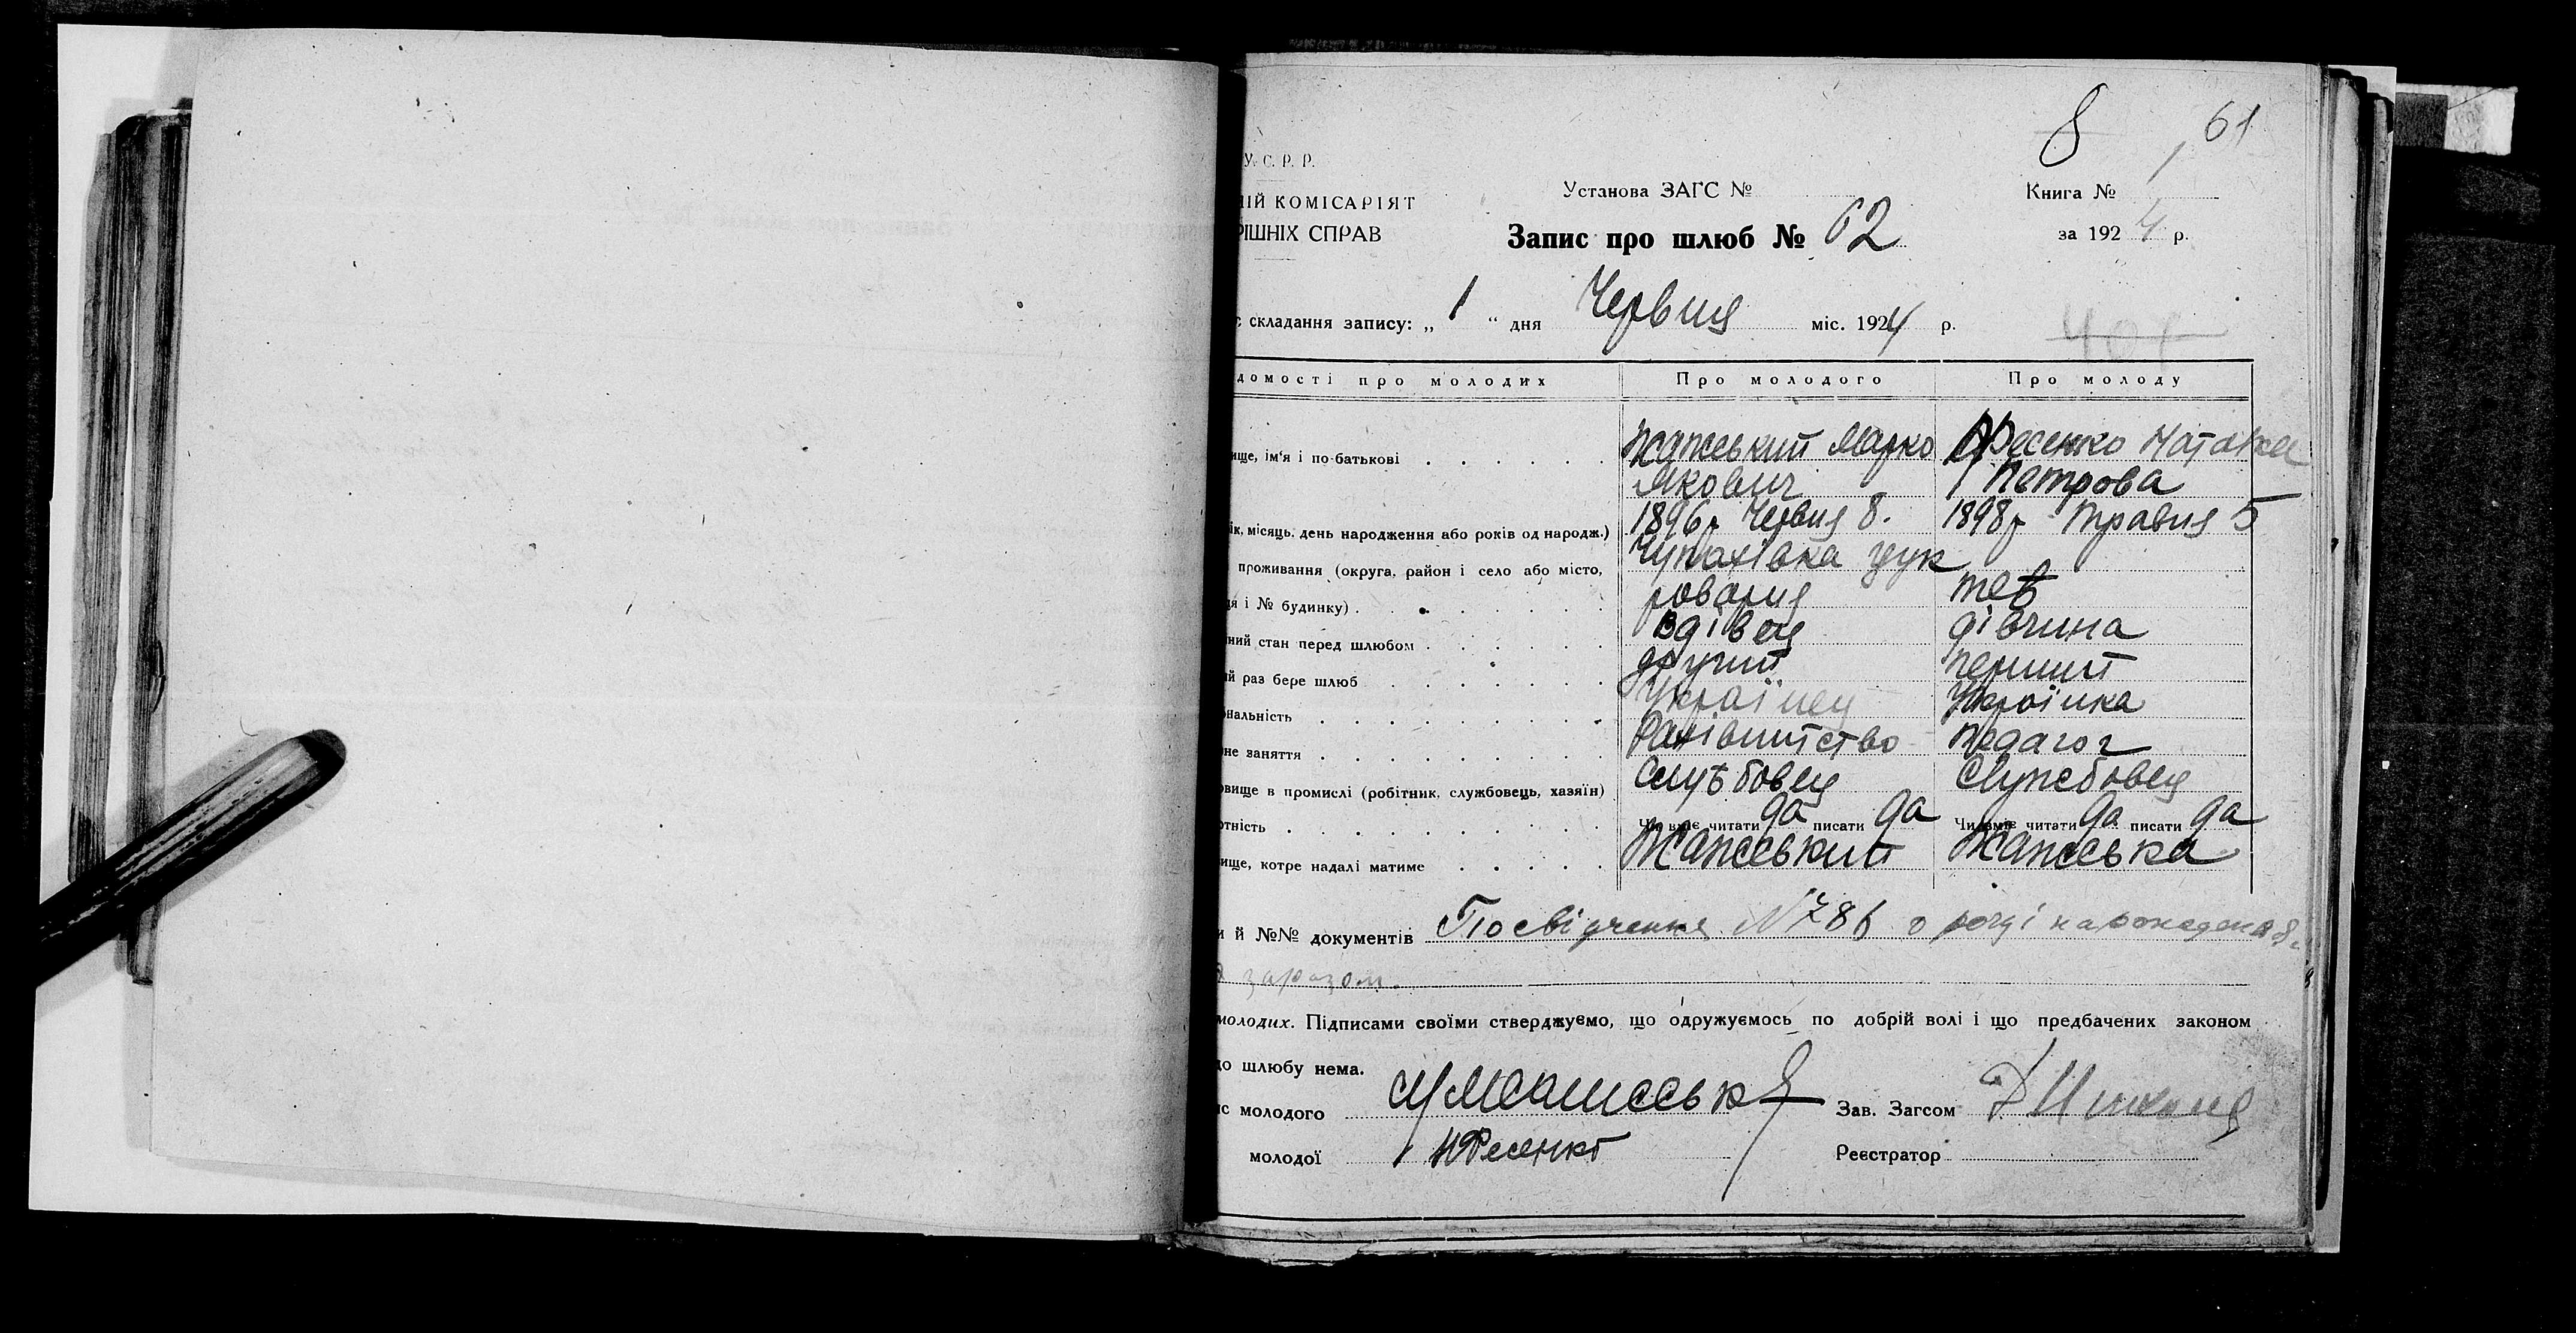 8 61
У. С. Р. Р.
НІЙ КОМІСАРІЯТ
РІШНІХ СПРАВ
Установа ЗАГС №
Книга № 1
Запис про шлюб № 62
за 1924 р.
складання запису: „ 1 “ дня Червня міс. 1924 р.
домості про молодих Про молодого Про молоду
ище, ім'я і по-батькові . . . . . Жажський Марко Фесенко Наталка
Якович Петрова
ік, місяць, день народження або років од народж.) 1896 р Червня 8. 1898 р Травня 5
проживання (округа, район і село або місто, Чупахівка цук
я і № будинку) . . . . . . . роварня теж
ний стан перед шлюбом . . . . . . вдівец дівчина
й раз бере шлюб . . . . . . . другий перший
нальність . . . . . . . . Українец Українка
не заняття . . . . . . . . Рахівництво Педагог
овище в промислі (робітник, службовець, хазяїн) Службовец Службовец
тність . . . . . . . . Чи вміє читати да писати да Чи вміє читати да писати да
ище, котре надалі матиме . . . . . Жажський Жажська
и й №№ документів Посвідчення № 786 о році народження
заразом.
молодих. Підписами своїми стверджуємо, що одружуємось по добрій волі і що предбачених законом
до шлюбу нема.
с молодого Зав. Загсом
молодої НФесенко Реєстратор